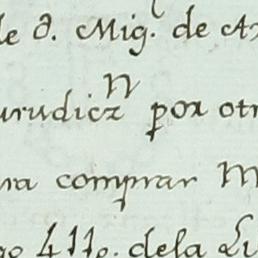 de d. Mig.l de A
urudicz n por otr
ra comprar M
go 411o. dela Lu